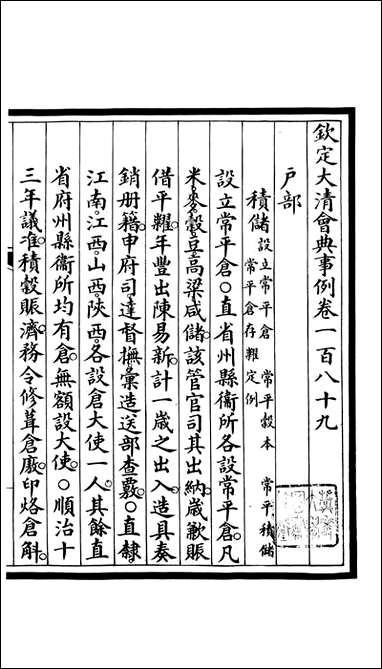 欽定大清會典事例卷一百八十九
戶部
積儲設立常平倉 常平穀本 常平積儲
常平倉存糶定例
設立常平倉○直省州縣衞所各設常平倉凡
米麥穀豆高粱咸儲該管官司其出納歲歉賑
借平糶年豐出陳易新計一歲之出入造具奏
銷册籍申府司達督撫彙造送部查覈○直隸
江南江西山西陝西各設倉大使一人其餘直
省府州縣衞所均有倉無額設大使○順治十
三年議准積穀賑濟務令修葺倉廒印烙倉斛